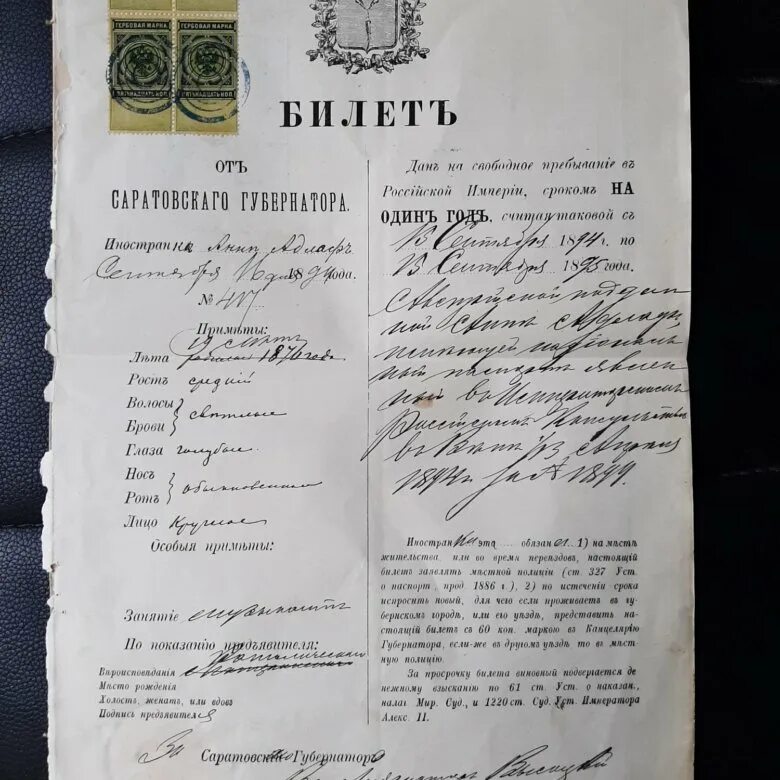 ГЕРБОВАЯ МАРКА
ГЕРБОВАЯ МАРКА
ПЯТНАДЦАТЬ КОП.
ПЯТНАДЦАТЬ КОП.
БИЛЕТЪ
ОТЪ
САРАТОВСКАГО ГУБЕРНАТОРА.
Иностранкѣ Аннѣ
Сентября 16 дня 1894 года.
№ 417
Примѣты:
19 лѣтъ
Лѣта 1876 года
Ростъ средній
Волосы
Брови
свѣтлые
Глаза голубые
Носъ
Ротъ
обыкновенные
Лицо Круглое
Особыя примѣты:
Занятіе музыкантъ
По показанію предъявителя:
Католическаго
Вѣроисповѣданія
Мѣсто рожденія
Холостъ, женатъ, или вдовъ
Подпись предъявителя
За Саратовскаго Губернатора
Данъ на свободное пребываніе въ
Россійской Имперіи, срокомъ НА
ОДИНЪ ГОДЪ, считая таковой съ
13 Сентября 1894 г. по
13 Сентября 1895 года.
Австрійской поддан
ной Аннѣ
имѣющей національ
ный паспортъ явлен
ный въ Императорскомъ
Россійскомъ Консульствѣ
въ Вѣнѣ 1/13 Апрѣля
1894 г. за № 1899.
Иностранка эта обязана 1) на мѣстѣ
жительства, или во время переѣздовъ, настоящій
билетъ заявлять мѣстной полиціи (ст. 327 Уст.
о паспорт, прод. 1886 г.), 2) по истеченіи срока
испросить новый, для чего если проживаетъ въ гу-
бернскомъ городѣ, или его уѣздѣ, представить на-
стоящій билетъ съ 60 коп. маркою въ Канцелярію
Губернатора, если-же въ другомъ уѣздѣ то въ мѣст-
ную полицію.
За просрочку билета виновный подвергается де
нежному взысканію по 61 ст. Уст. о наказан,
налаг Мир. Суд., и 1220 ст. Суд. Уст. Императора
Алекс. II.